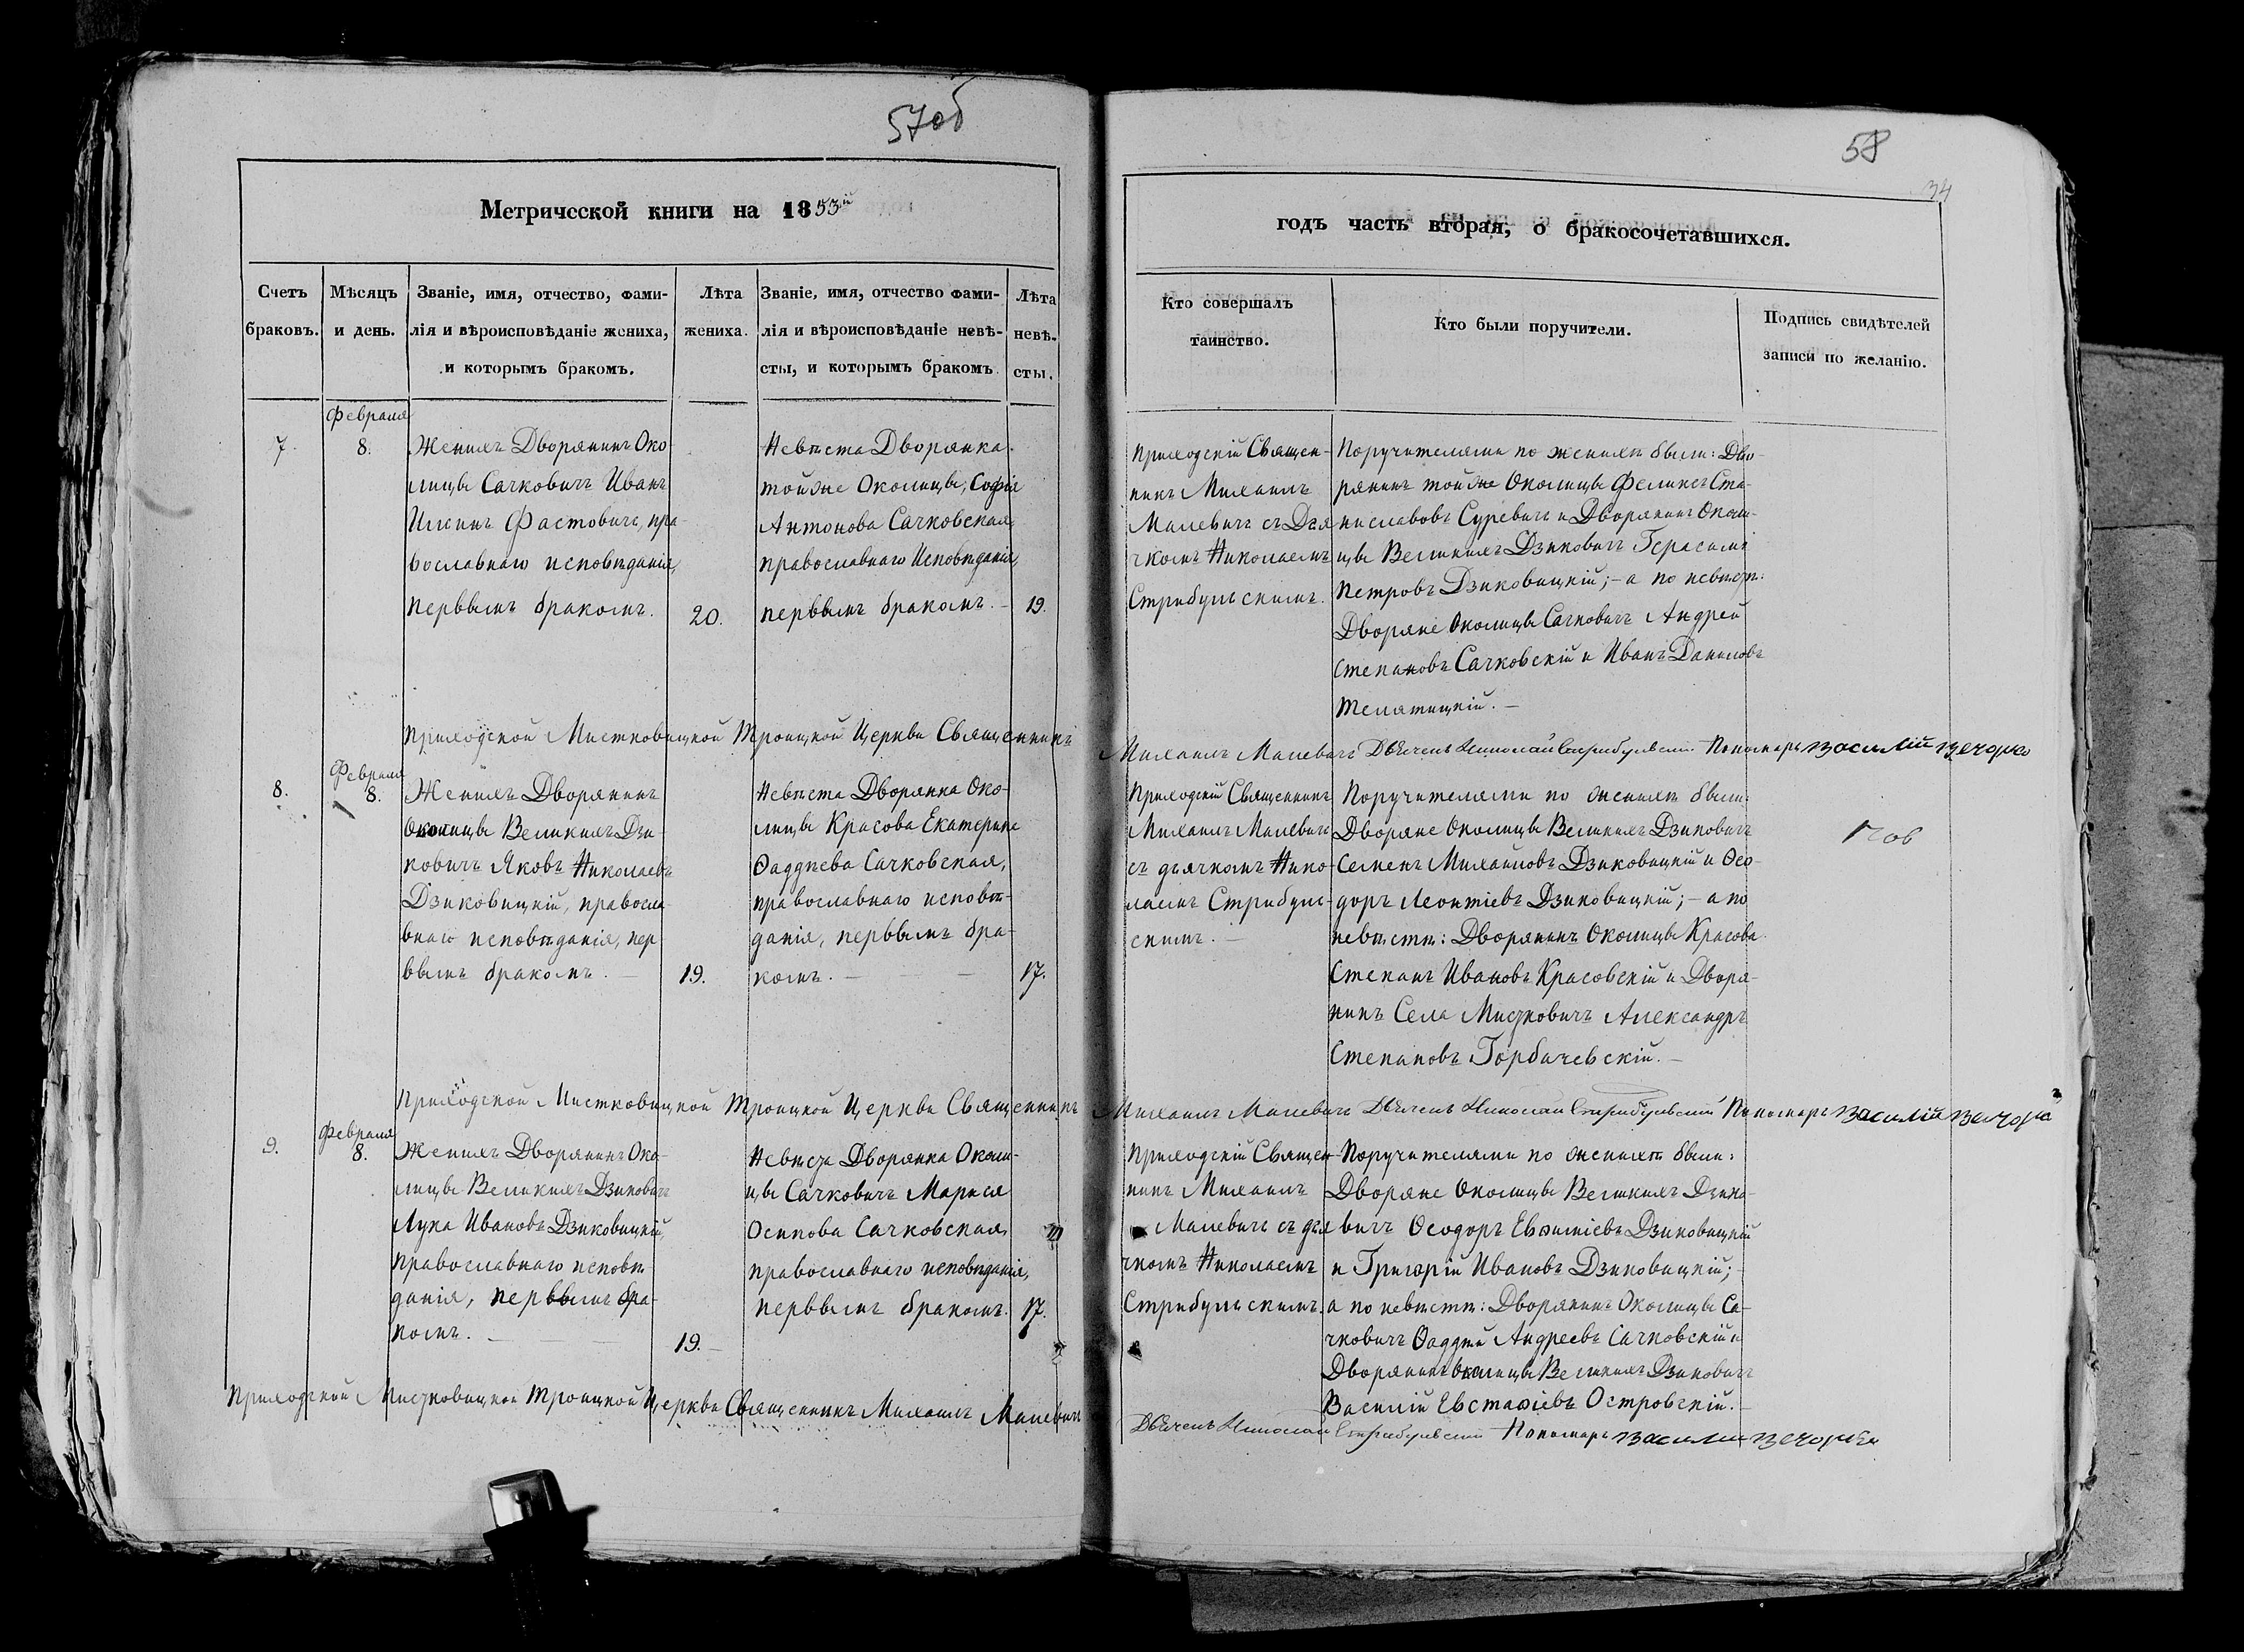 57об
Метрической книги на 1853й
Счетъ браковъ.
Мѣсяцъ и день.
Званіе, имя, отчество, фами-
лія и вѣроисповѣданіе жениха,
и которымъ бракомъ.
Лѣта жениха.
Званіе, имя, отчество фами-
лія и вѣроисповѣданіе невѣ-
сты, и которымъ бракомъ
Лѣта невѣ-
сты.
7.
Февраля
8.
Женихъ Дворянинъ Око-
лицы Сачковичъ Иванъ
Фастовичъ, пра-
вославнаго исповѣданія,
первымъ бракомъ.
20.
Невѣста Дворянка
тойже Околицы, Софія
Антонова Сачковская,
православнаго Исповѣданія,
первымъ бракомъ.
19.
Приходской Мистковицкой Троицкой Церкви Священникъ
8.
Февраля
8.
Женихъ Дворянинъ
Околицы Великихъ Дзи-
ковичъ Яковъ Николаевъ
Дзиковицкій, правосла-
внаго исповѣданія, пер-
вымъ бракомъ.
19.
Невѣста Дворянка Око-
лицы Красова Екатерина
Ѳаддѣева Сачковская,
православнаго исповѣ-
данія, первымъ бра-
комъ.
17.
Приходской Мистковицкой Троицкой Церкви Священникъ
9.
Февраля
8.
Женихъ Дворянинъ Око-
лицы Великихъ Дзиковичъ
Лука Ивановъ Дзиковицкій,
православнаго исповѣ-
данія, первымъ бра-
комъ.
19.
Невѣста Дворянка Околи-
цы Сачковичъ Марися
Осипова Сачковская,
православнаго исповѣданія,
первымъ бракомъ.
17.
Приходской Мистковицкой Троицкой Церкви Священникъ Михаилъ Малевичъ
58
34
годъ часть вторая, о бракосочетавшихся.
Кто совершалъ
таинство.
Кто были поручители.
Подпись свидѣтелей
записи по желанію.
Приходскій Священ-
никъ Михаилъ
Малевичъ съ Дья-
чкомъ Николаемъ
Стрибульскимъ.
Поручителями по женихѣ были: Дво-
рянинъ тойже Околицы Феликсъ Ста-
ниславовъ Суревичъ и Дворянинъ Околи-
цы Великихъ Дзиковичъ Герасимъ
Петровъ Дзиковицкій; - а по невѣстѣ:
Дворяне Околицы Сачковичъ Андрей
Степановъ Сачковскій и Иванъ Даниловъ
Телятицкій. -
Михаилъ Малевичъ Дьячекъ Николай Стрибульскій Пономаръ Василій Вечорко
Приходскій Священникъ
Михаилъ Малевичъ
съ дьячкомъ Нико-
лаемъ Стрибуль-
скимъ. -
Поручителями по женихѣ были:
Дворяне Околицы Великихъ Дзиковичъ
Семенъ Михайловъ Дзиковицкій и Ѳео-
доръ Леонтіевъ Дзиковицкій; - а по
невѣстѣ: Дворянинъ Околицы Красова
Степанъ Ивановъ Красовскій и Дворя-
нинъ Села Мистковичъ Александръ
Степановъ Горбачевскій. -
Михаилъ Малевичъ Дьячекъ Николай Стрибульскій Пономаръ Василій
Приходскій Священ-
никъ Михаилъ
Малевичъ съ дья-
чкомъ Николаемъ
Стрибульскимъ.
Поручителями по женихѣ были:
Дворяне Околицы Великихъ Дзико-
вичъ Ѳеодоръ Евѳиміевъ Дзиковицкій
и Григорій Ивановъ Дзиковицкій; -
а по невѣстѣ: Дворянинъ Околицы Са-
чковичъ Ѳаддей Андреевъ Сачковскій и
Дворянинъ Околицы Великихъ Дзиковичъ
Василій Евстафіевъ Островскій. -
Дьячекъ Николай Стрибульскій Пономаръ Василій